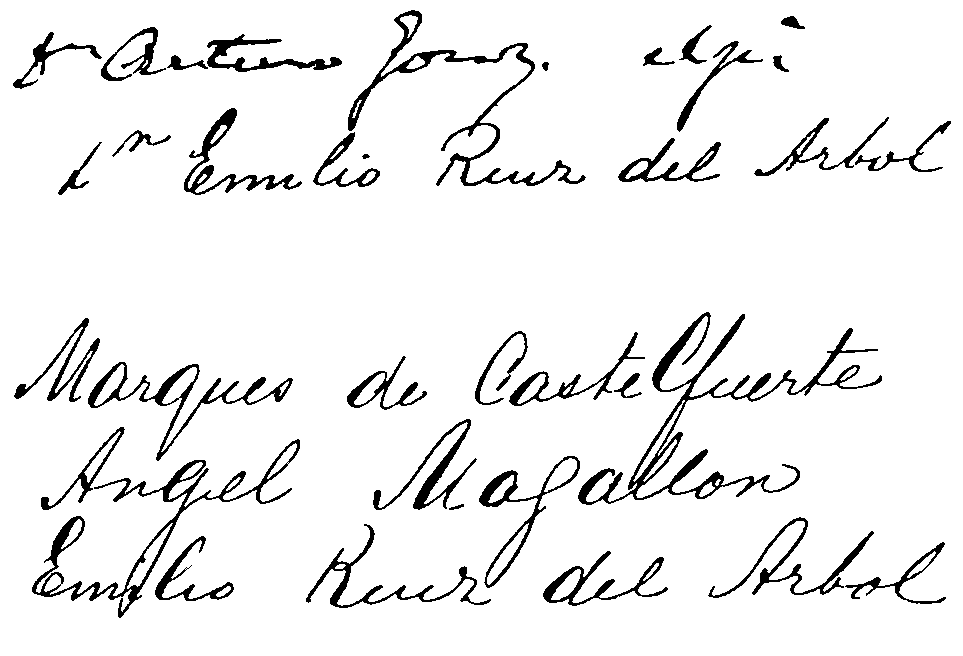 Dn Arturo
dn Emilio Ruiz del Arbol
Marques de Castelfuerte
Angel Magallon
Emilio Ruiz del Arbol